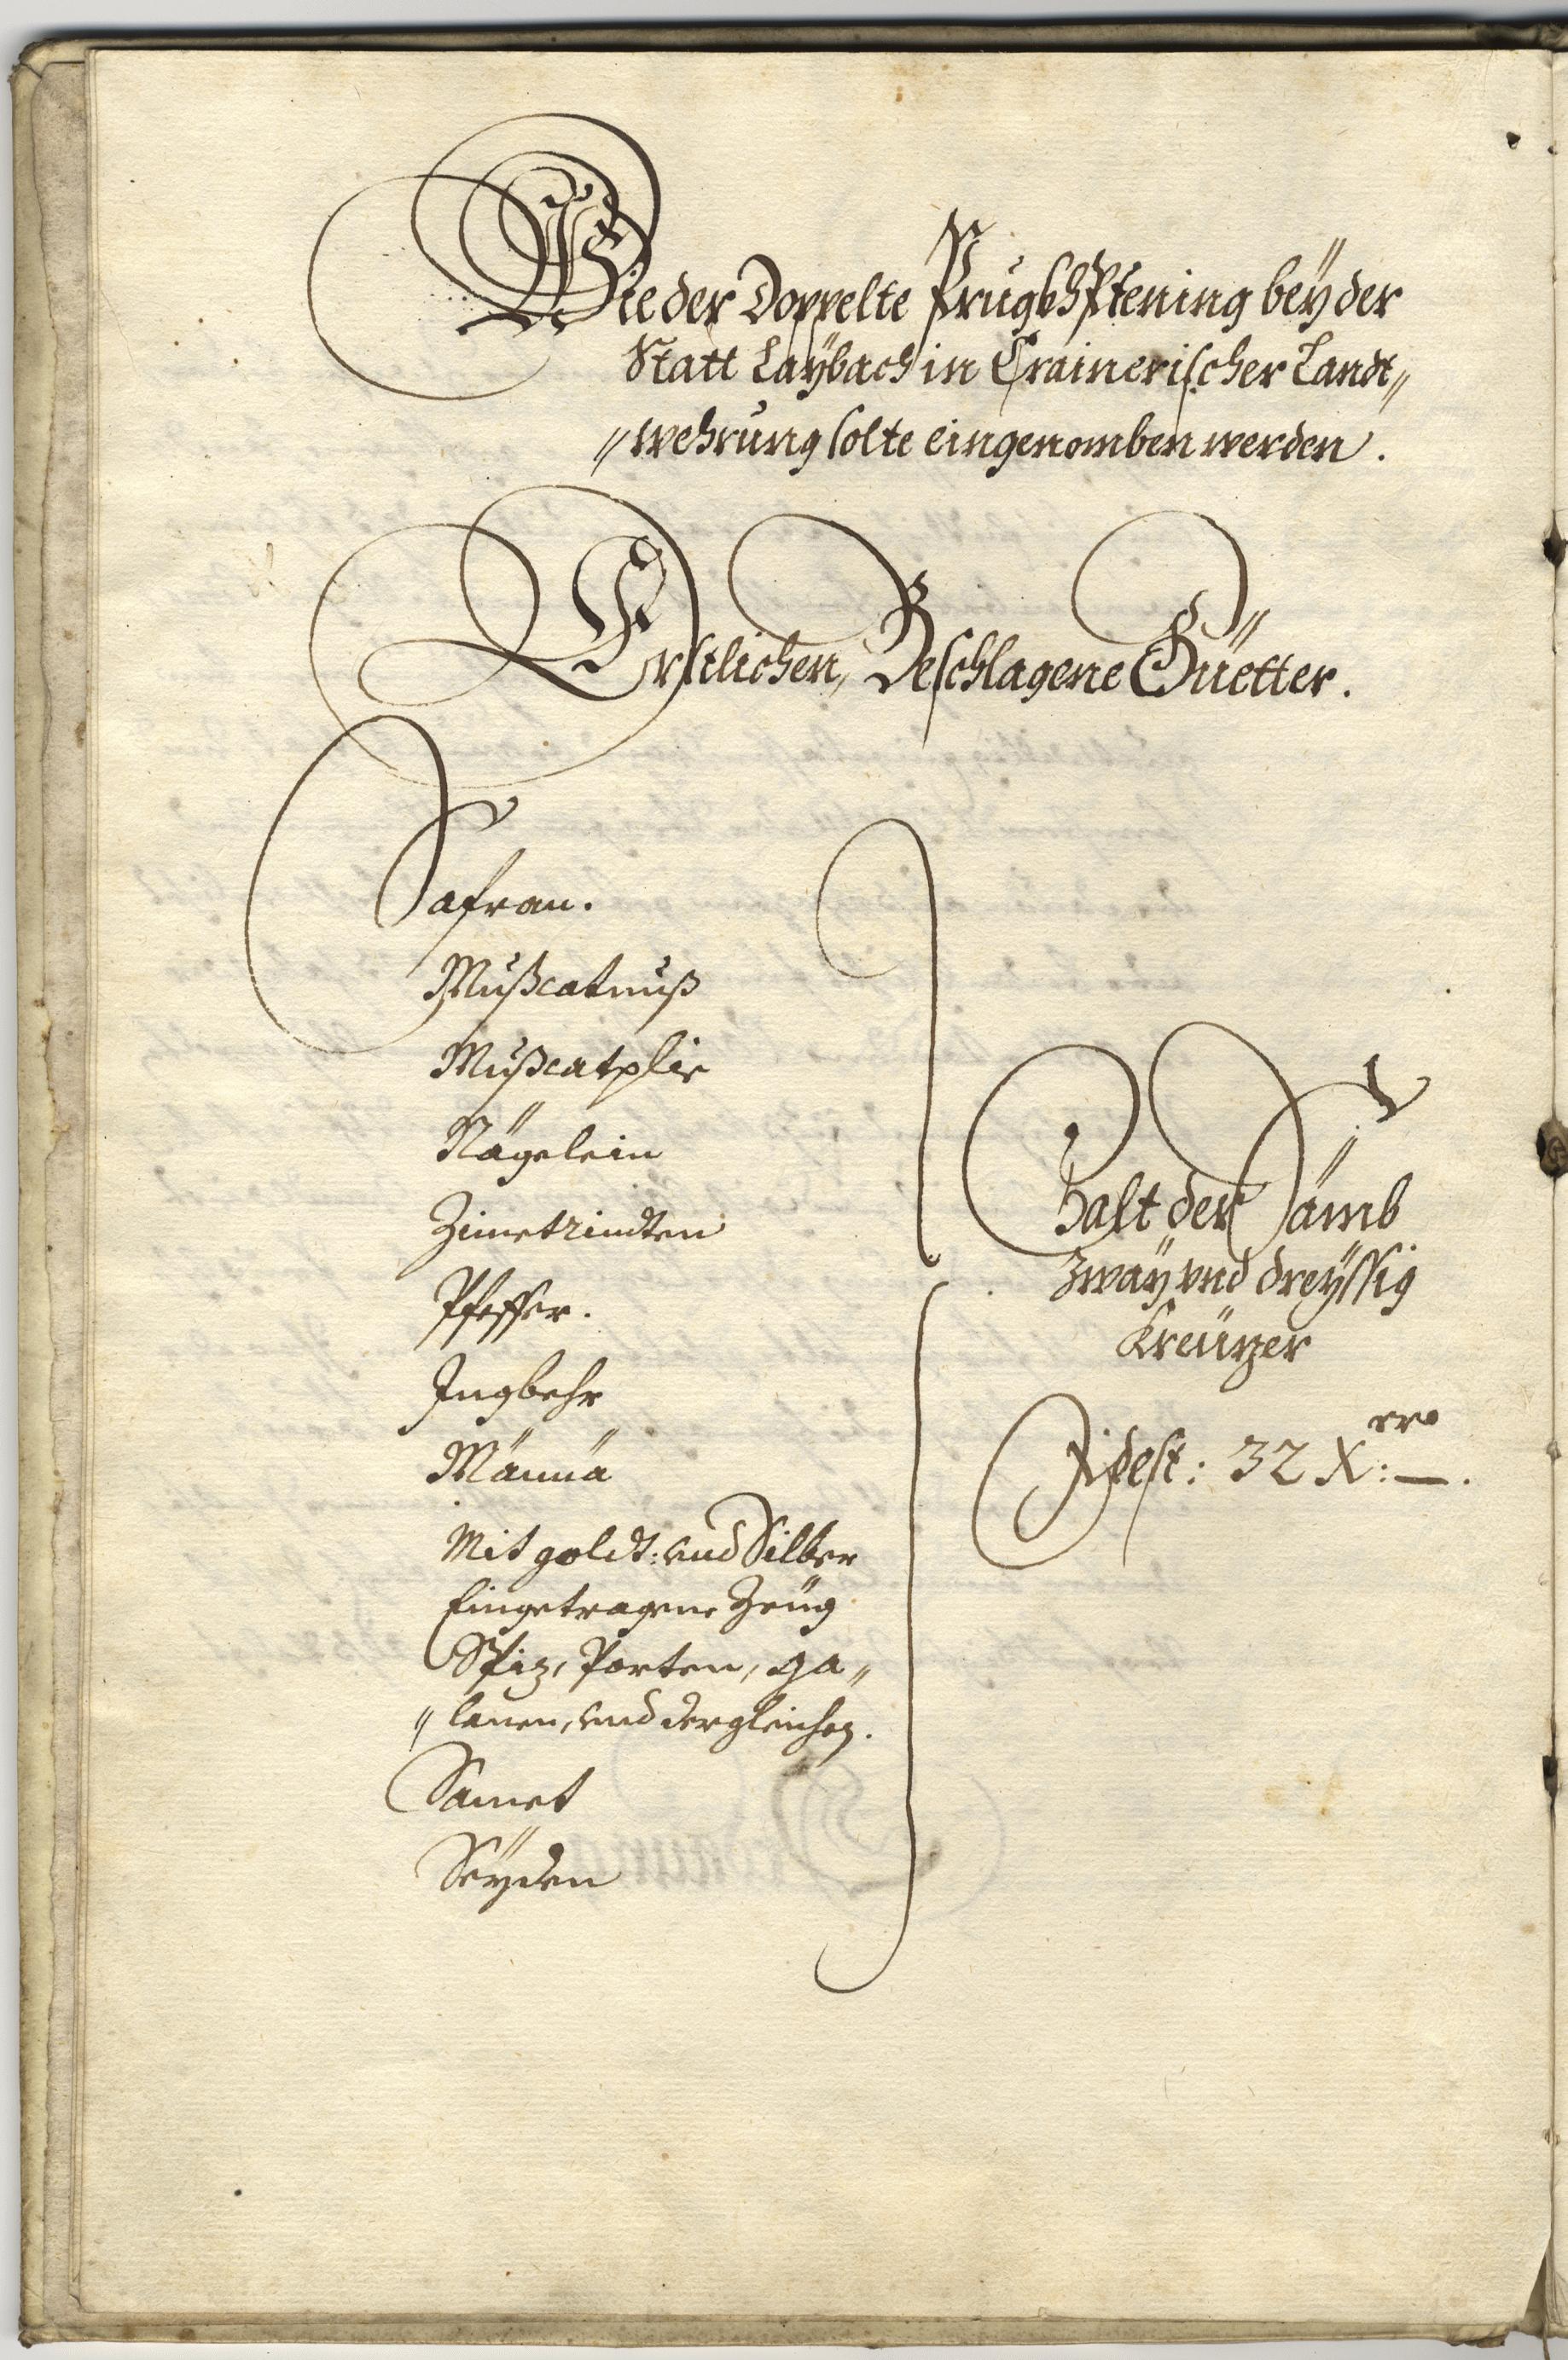 Wie der Doppelte Prugkhpfening beÿ der
Statt Laÿbach in Crainerischer Landt„
„wehrung solte eingenomben werden.
Erstlichen, Beschlagene Güetter.
Safran.
Mußcatnuß
Mußcatplie
Nägelein
Zimetrindten
Pfeffer.
Ingbehr
Männä
Mit goldt: vnd Silber
Eingetragene Zeüg
Spiz, Porten, Ga„
„lanen, vnd dergleichen.
Samet
Seÿden
Zalt der Sämb
Zwäÿ vnd dreÿssig
Kreüzer
Idest: 32 X: